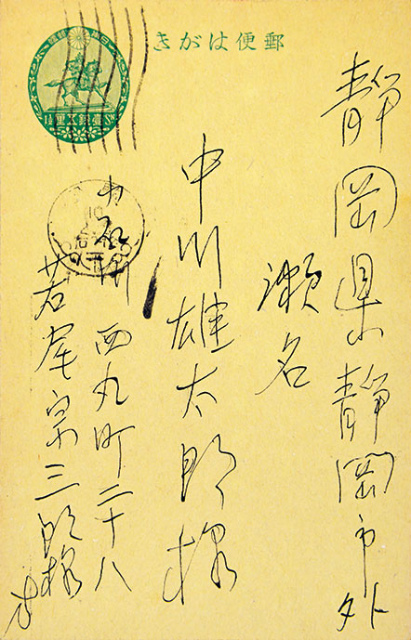 郵便はがき
静岡県静岡市外
瀬名
中川雄太郎様
西丸町二十八
若尾宗三郎様